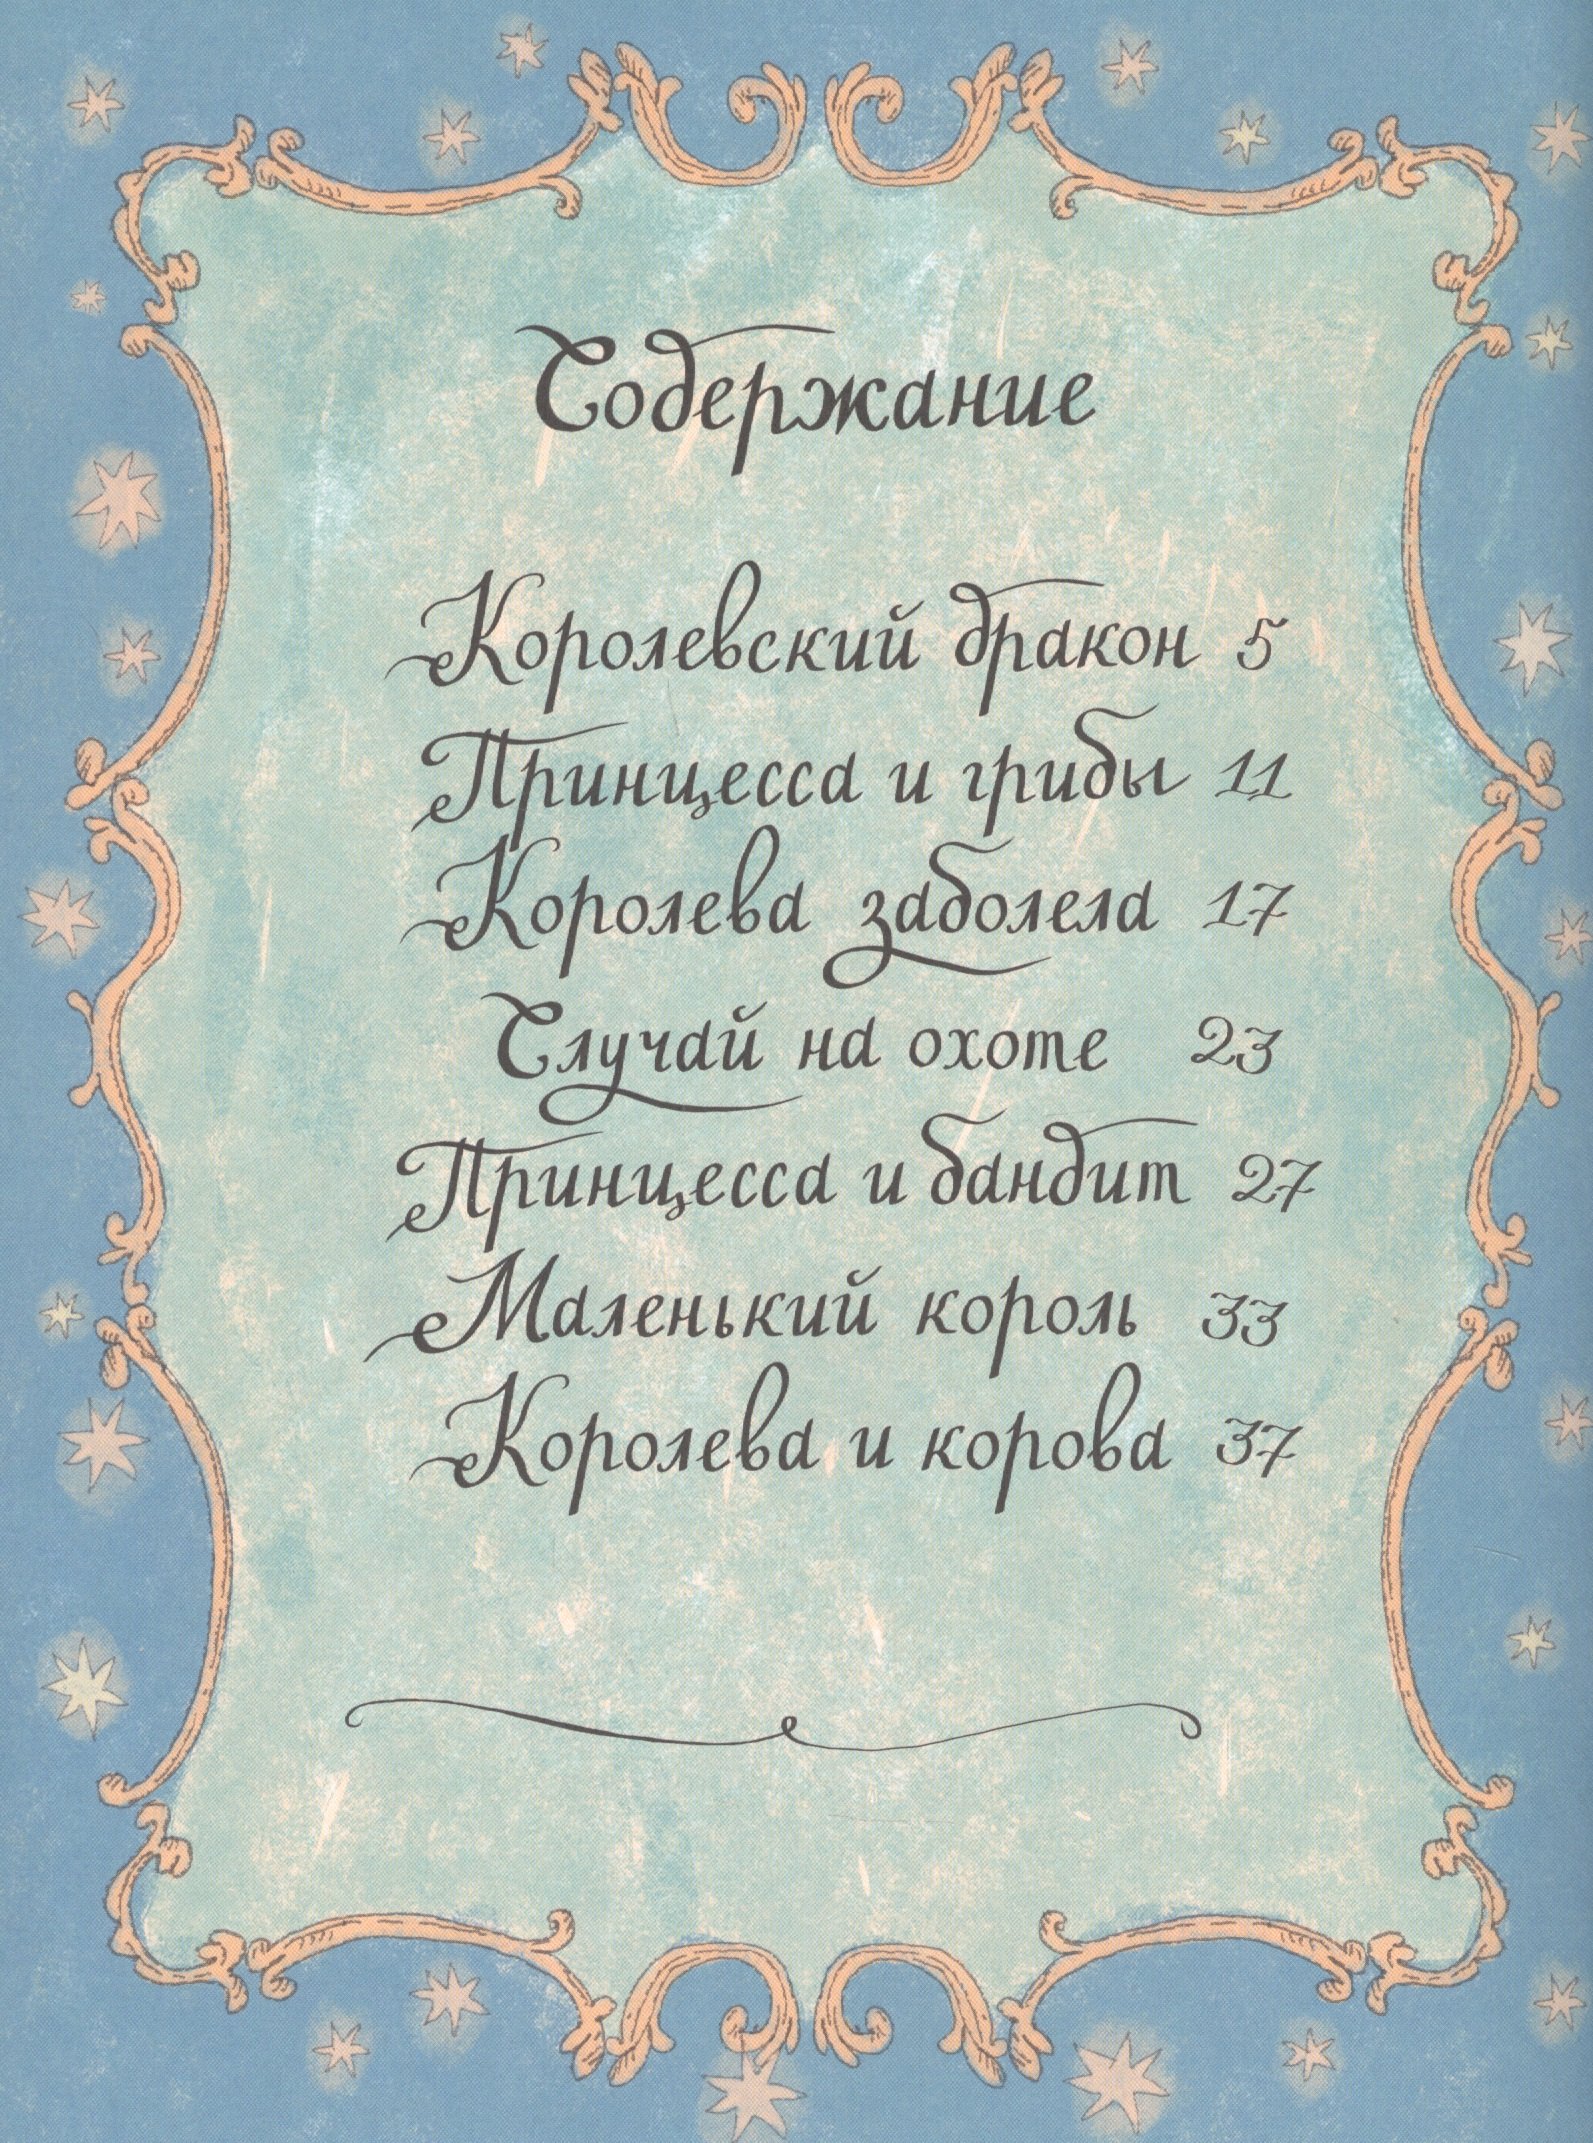 Содержание
Королевский дракон 5
Принцесса и грибы 11
Королева заболела 17
Случай на охоте 23
Принцесса и бандит 27
Маленький король 33
Королева и корова 37